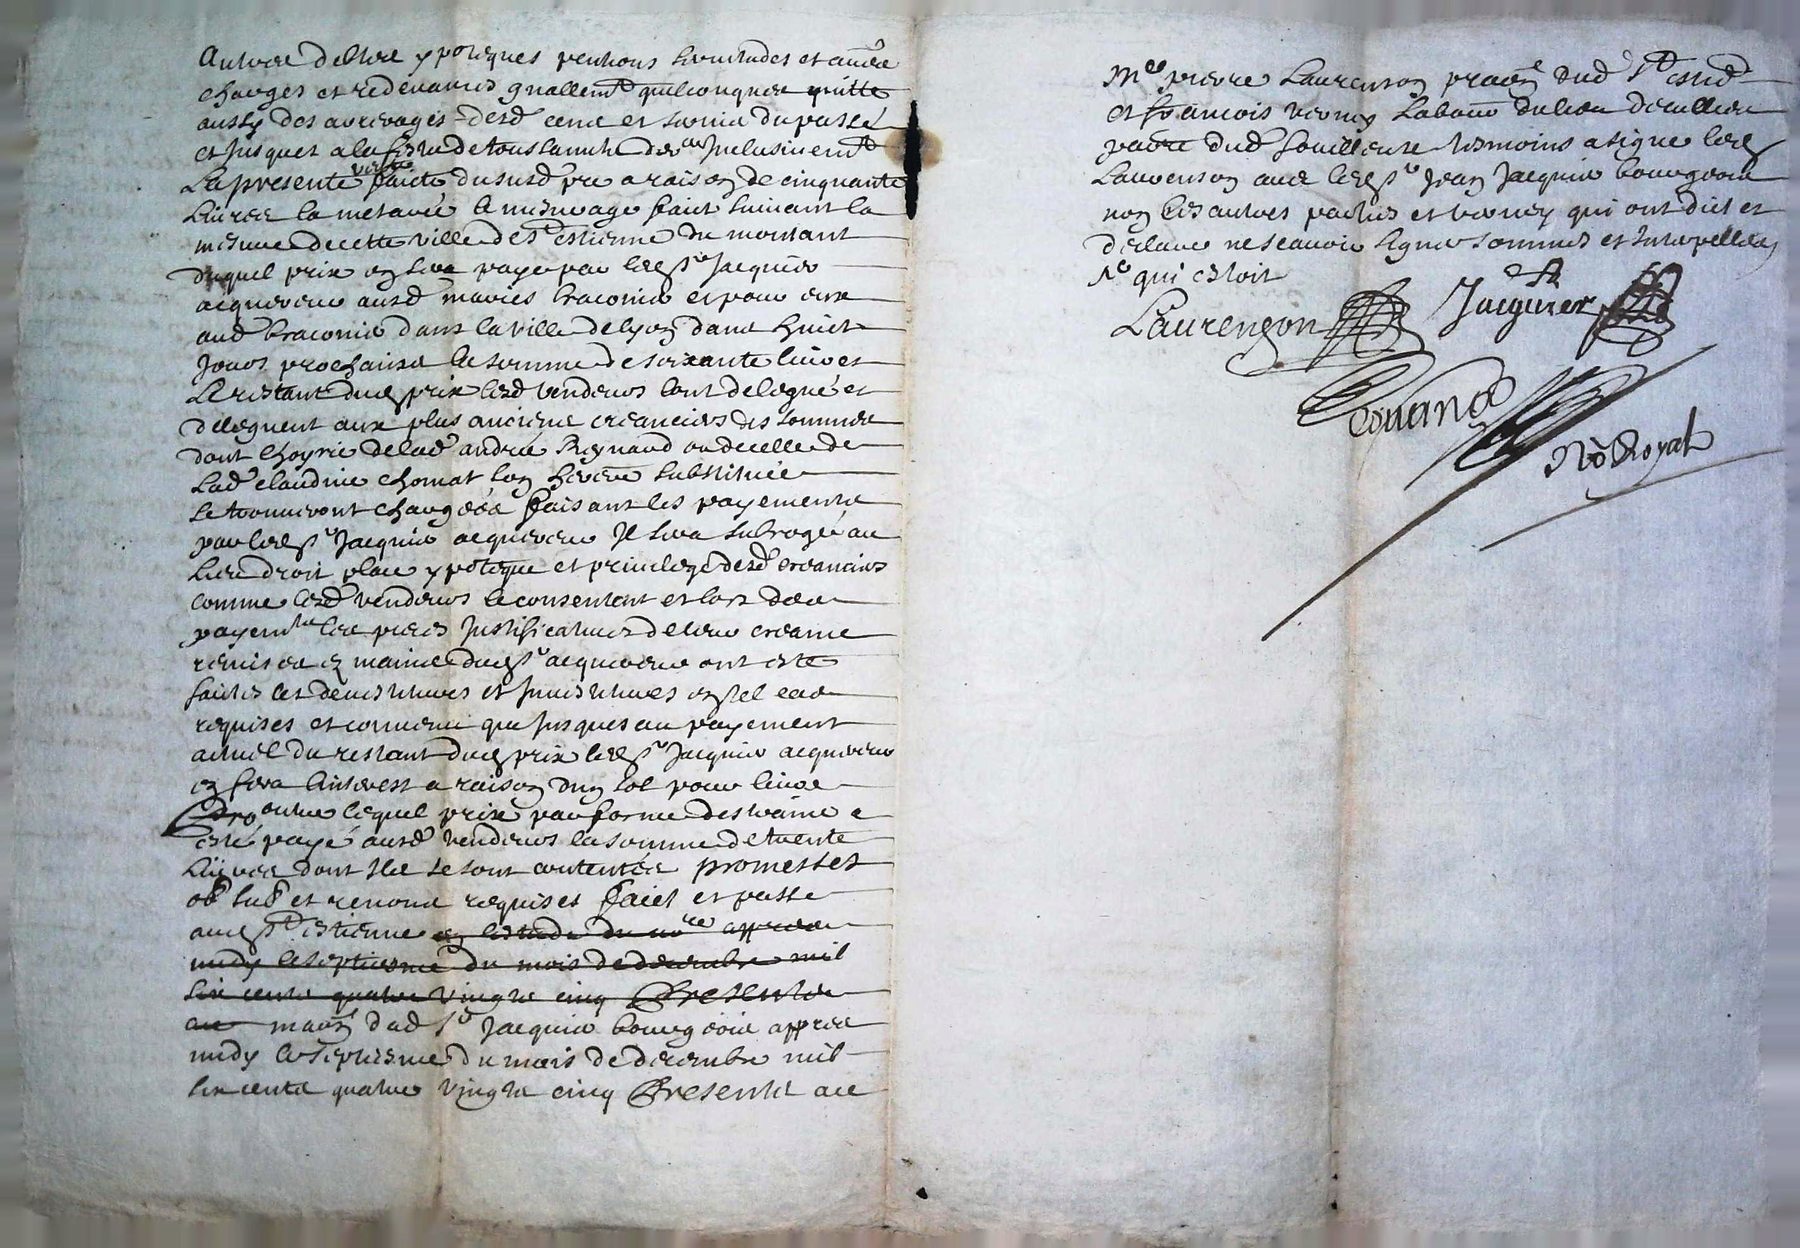 Autres debtes ypoteques pentions servitudes et autres
charges et redevances gnallemt quelconques quitte
aussy des arrerages desd cens et servis du passé
et jusques a la feste de toussaincts dernr Inclusivemt
La presente vente faicte dususd pre a raison de cinquante
Livres la metanée le mesurage faict suivant la
mesure decette ville de St estienne du montant
duquel prix en sera payé par ledt sr Jacquier
acquereur ausd mariés bracomier et pour eux
aud bracomier dans la ville de lyon dans huict
Jours prochains la somme de soixante livres
Le restant dud prix lesd vendeurs ont delegué et
deleguent aux plus anciens creanciers des sommes
dont lhoyrie delad andrée Reynaud ou decelle de
Lad claudine chomat son heritiere substituée
se trouveront chargées faisant les payements
par ledt sr Jacquier acquereur Il sera subrogé au
Lieu droit place ypoteque et privilege desd creanciers
comme lesd vendeurs le consentent et lors des
payemts les pieces Justificatives de leur creance
remises es mains dudt sr acquereur ont esté
faictes les demistitures et Jmistitures en tel cas
requises et convenu que jusques au payement
actuel du restant dud prix ledt sr Jacquier acquereur
en fera linterest a raison dun sol pour livre
outre lequel prix par forme destraine a
esté payé ausd vendeurs la somme de trente
Livres dont Ils se sont contentés promesses
ob sub et renon requises faict et passé
aud St estienne en lestude du nore appres
midy le septiesme du mois de decembre mil
six cents quatre vingts cinq Presents
maon dud Sr Jacquier bourgeois appres
midy le septiesme du mois de decembre mil
six cents quatre vingts cinq Presents a ce
Mre pierre Laurenson praen dud St estne
et francois verney Laboureur du lieu
parre dud souillerre tesmoins a signé led
Laurenson avec ledt sr Jean Jacquier bourgeois
non les autres parties et verney qui ont dict et
declaré ne scavoir signer sommés et Interpellés
Sr qui estoit
Laurenson Jacquier
Nore Royal